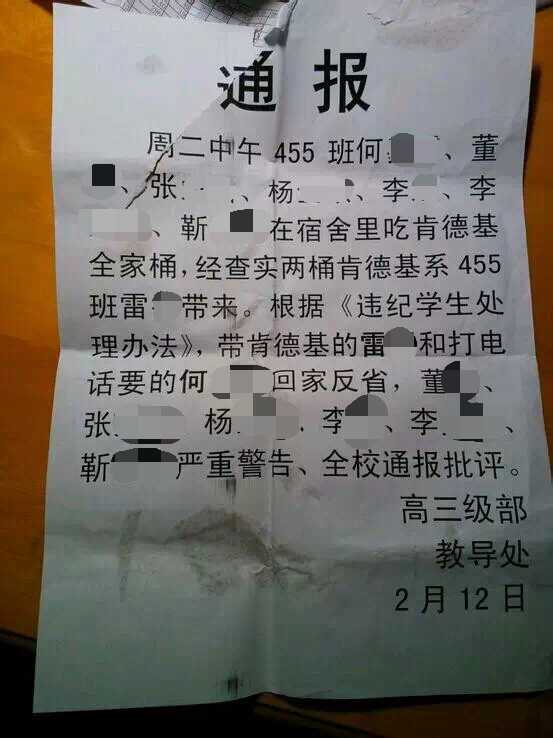 通报
周二中午 455 班何、董
、张、杨、李、李
、靳 在宿舍里吃肯德基
全家桶，经查实两桶肯德基系 455
班雷 带来。根据《违纪学生处
理办法》，带肯德基的雷 和打电
话要的何 回家反省，董、
张 杨 、李、李、
靳 严重警告、全校通报批评。
高三级部
教导处
2 月 12 日